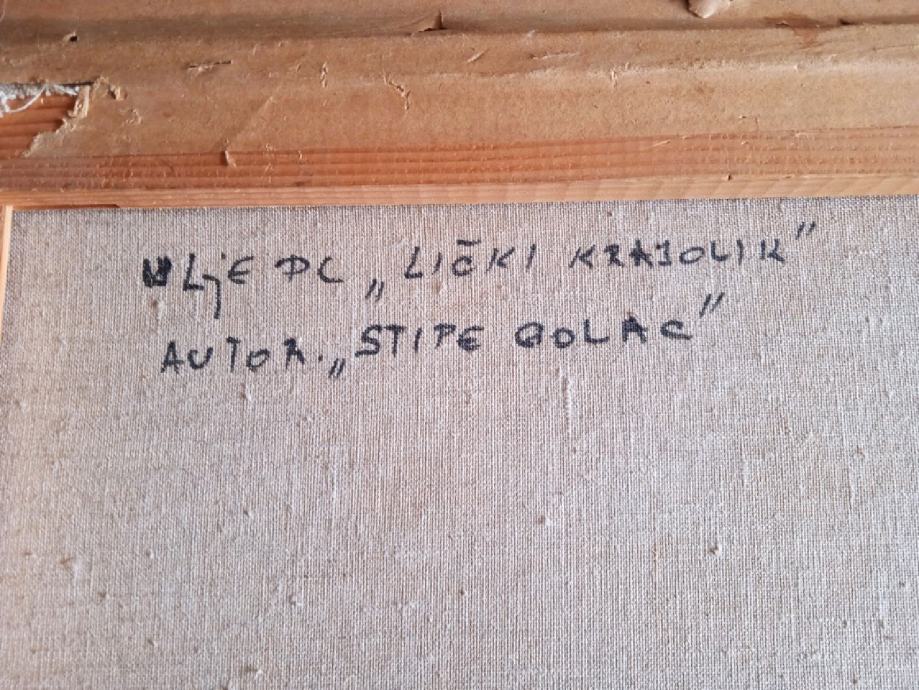 ULjE PL „LIČKI KRAJOLIK”
AUTOR. „STIPE GOLAC”